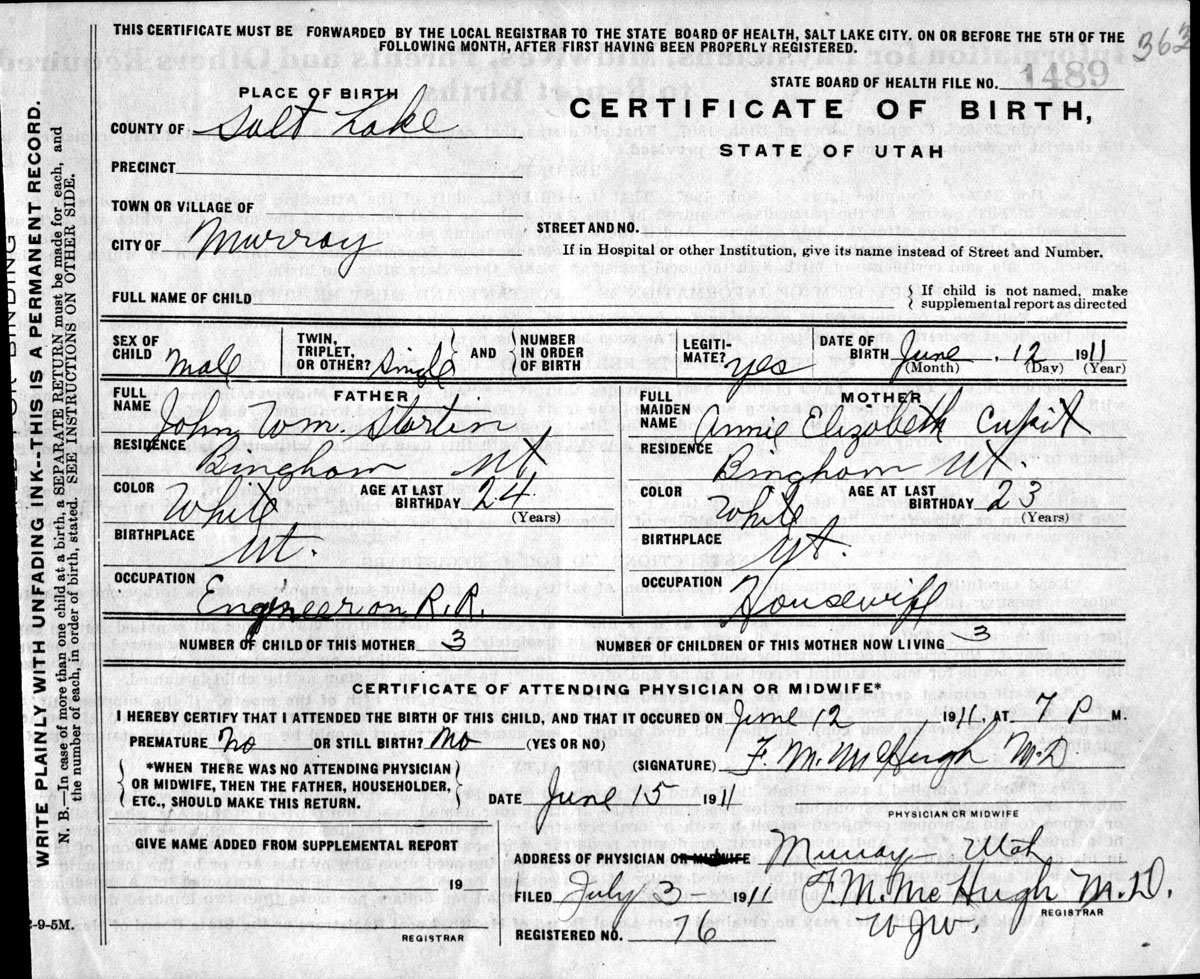 THIS CERTIFICATE MUST BE FORWARDED BY THE LOCAL REGISTRAR TO THE STATE BOARD OF HEALTH, SALT LAKE CITY, ON OR BEFORE THE 5TH OF THE
FOLLOWING MONTH, AFTER FIRST HAVING BEEN PROPERLY REGISTERED.
363
STATE BOARD OF HEALTH FILE NO. 1489
PLACE OF BIRTH
CERTIFICATE OF BIRTH,
COUNTY OF Salt Lake
STATE OF UTAH
PRECINCT
TOWN OR VILLAGE OF
STREET AND NO.
CITY OF Murray
If in Hospital or other Institution, give its name instead of Street and Number.
FULL NAME OF CHILD
If child is not named, make
supplemental report as directed
SEX OF CHILD Male
TWIN, TRIPLET, OR OTHER? Single
AND NUMBER IN ORDER OF BIRTH
LEGITI-MATE? yes
DATE OF BIRTH June 12 1911
(Month) (Day) (Year)
FATHER
FULL NAME John Wm.
RESIDENCE Bingham Ut
COLOR White AGE AT LAST BIRTHDAY 24
(Years)
BIRTHPLACE Ut.
OCCUPATION Engineer on R.R.
MOTHER
FULL MAIDEN NAME Annie Elizabeth
RESIDENCE Bingham Ut.
COLOR White AGE AT LAST BIRTHDAY 23
(Years)
BIRTHPLACE Ut.
OCCUPATION Housewife
NUMBER OF CHILD OF THIS MOTHER 3 NUMBER OF CHILDREN OF THIS MOTHER NOW LIVING 3
CERTIFICATE OF ATTENDING PHYSICIAN OR MIDWIFE*
I HEREBY CERTIFY THAT I ATTENDED THE BIRTH OF THIS CHILD, AND THAT IT OCCURED ON June 12 1911, AT 7 P M.
PREMATURE? no OR STILL BIRTH? No (YES OR NO)
*WHEN THERE WAS NO ATTENDING PHYSICIAN
OR MIDWIFE, THEN THE FATHER, HOUSEHOLDER,
ETC., SHOULD MAKE THIS RETURN.
(SIGNATURE) F. M. McHugh M.D
DATE June 15 1911
PHYSICIAN OR MIDWIFE
GIVE NAME ADDED FROM SUPPLEMENTAL REPORT
19
REGISTRAR
ADDRESS OF PHYSICIAN OR MIDWIFE Murray Utah
FILED July 3 - 1911 F. M. McHugh M.D.
REGISTRAR
W.J.W.
REGISTERED NO. 76
WRITE PLAINLY WITH UNFADING INK--THIS IS A PERMANENT RECORD.
N. B.—In case of more than one child at a birth, a SEPARATE RETURN must be made for each, and
the number of each, in order of birth, stated. SEE INSTRUCTIONS ON OTHER SIDE.
-9-5M.